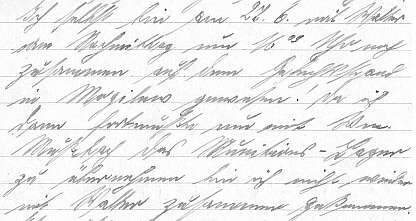 Ich selbst bin am 22. 6. mit Walter
den Nachmittag um 16 Uhr noch
zusammen auf dem
in Mogilew gewesen! Da ich
dann fortmußte um mit
das Munitions-Lager
zu übernehmen bin ich nicht wieder
mit Walter zusammen gekommen